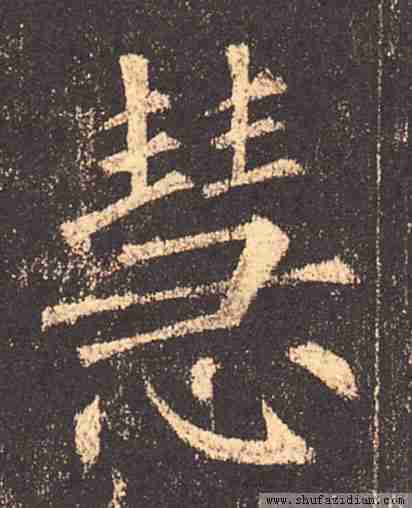 慧
www.shufazidian.com